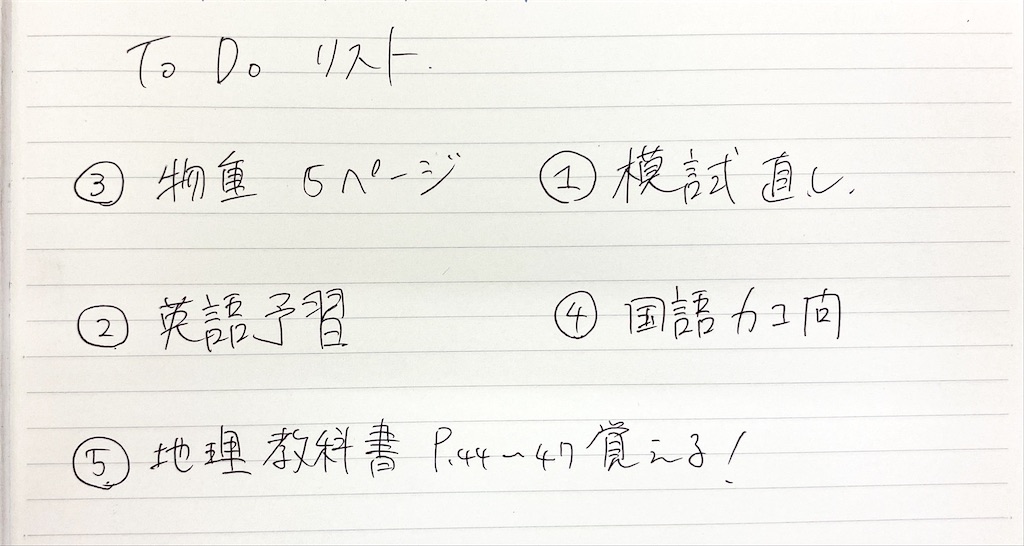 To Do リスト.
③ 物重 5ページ ① 模試直し.
② 英語予習 ④ 国語カコ問
⑤ 地理教科書 P.44~47覚える!